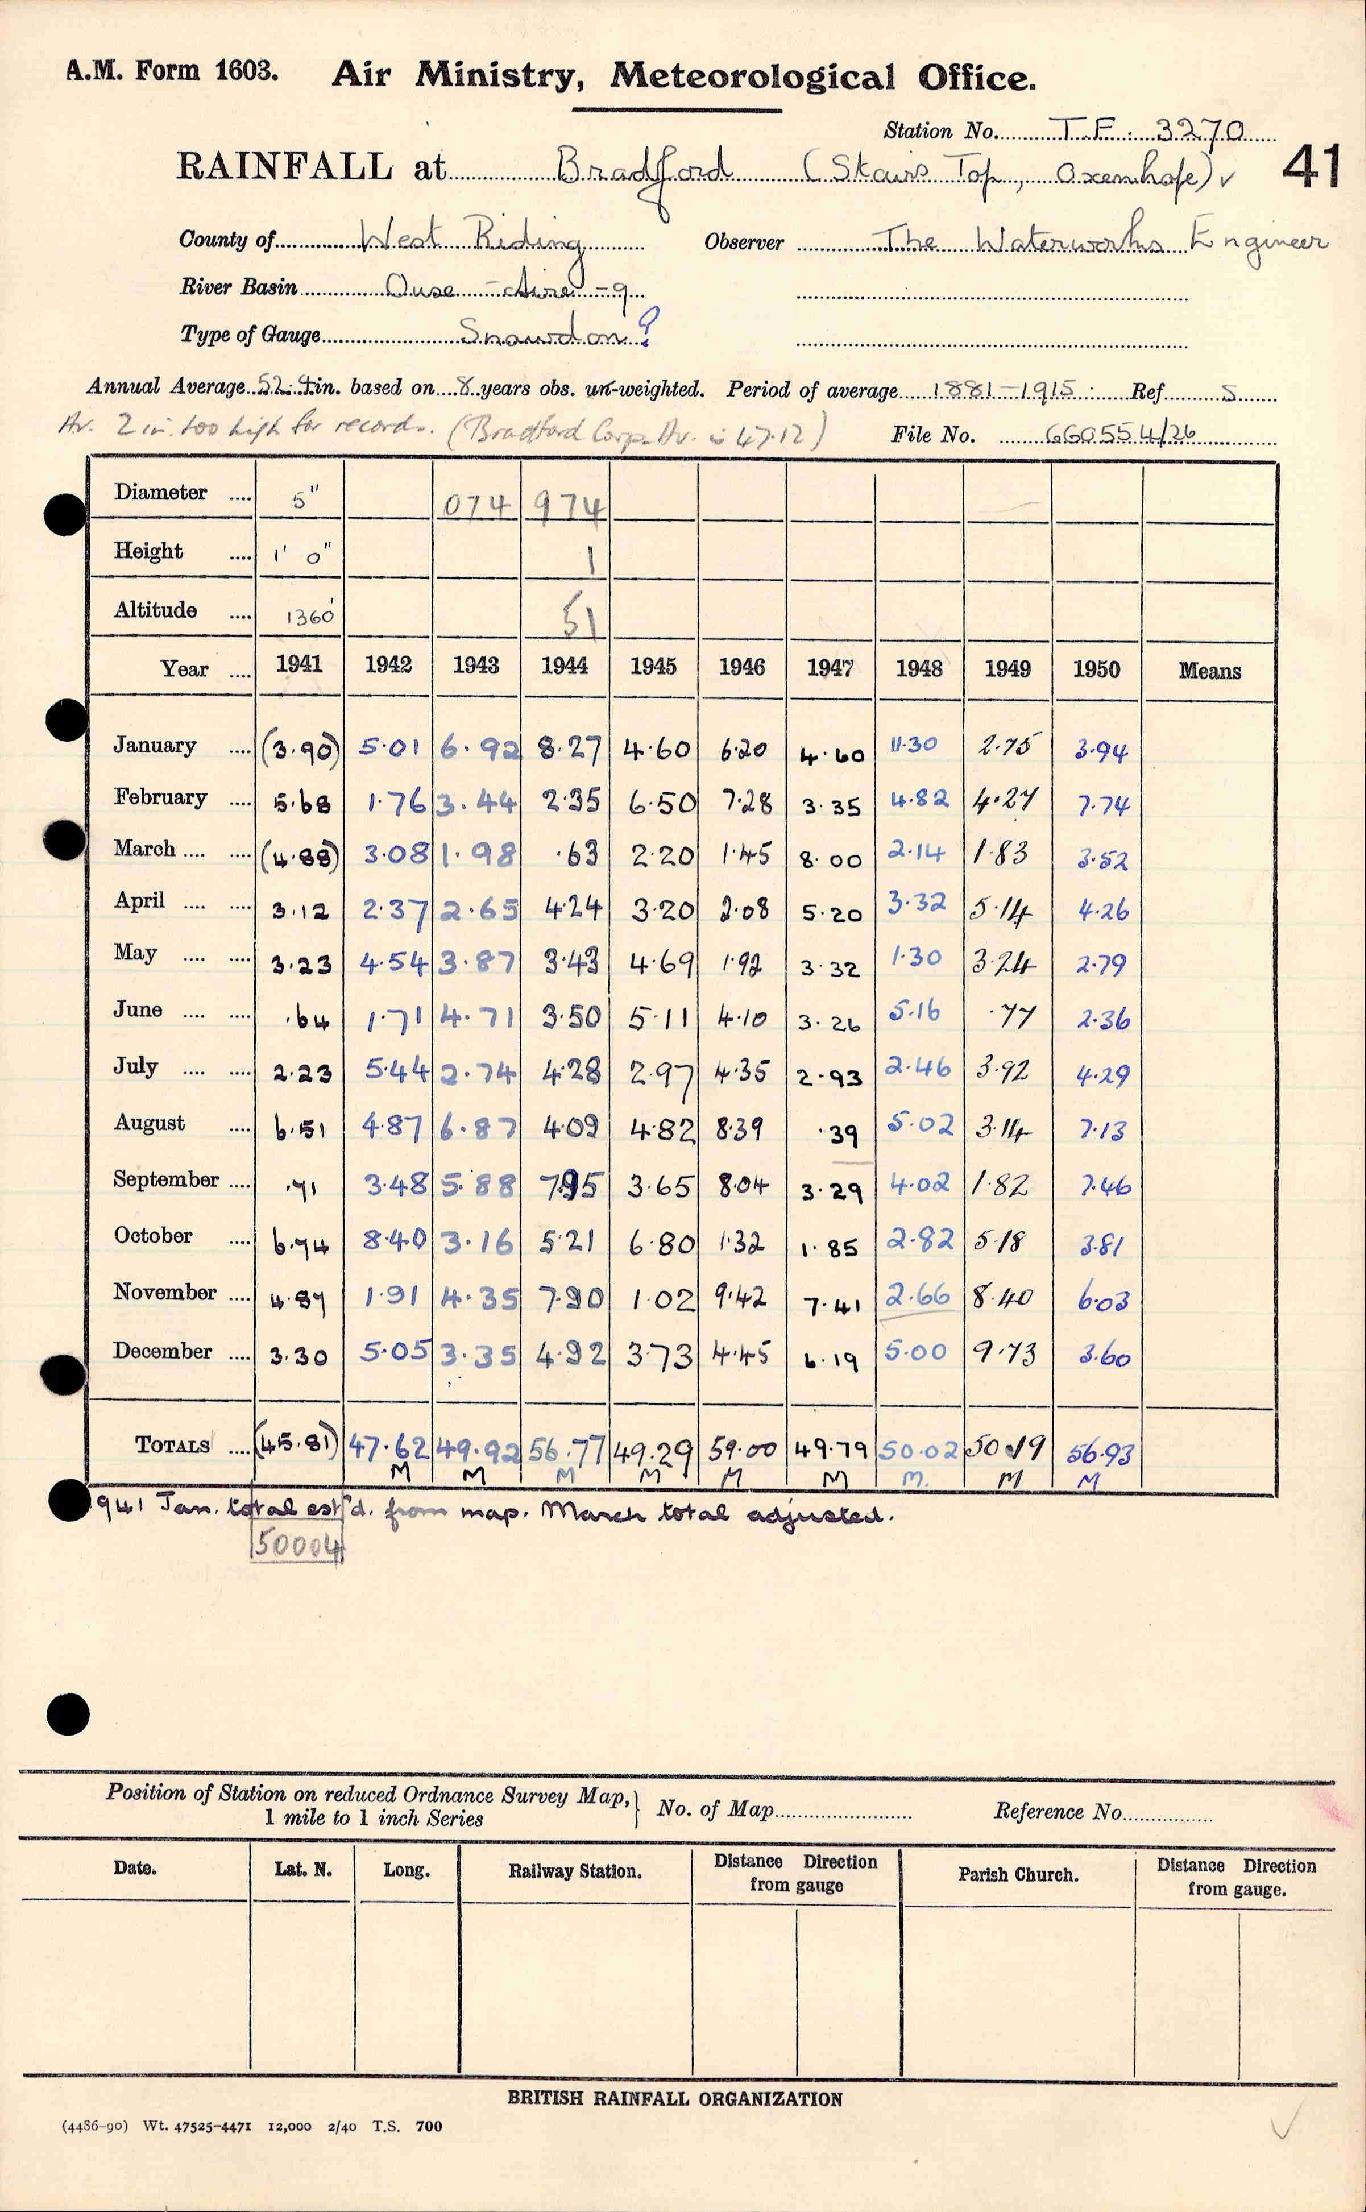 A.M. Form 1603. Air Ministry, Meteorological Office.
Station No. T.F. 3270
RAINFALL at Bradford (Stairs Top, Oxenhope) ✓ 41
County of West Riding Observer The Waterworks Engineer
River Basin Ouse - Aire - 9
Type of Gauge Snowdon ?
Annual Average 52.4 in. based on 8 years obs. un-weighted. Period of average 1881-1915 Ref S
Av. 2 in. too high for records. (Bradford Corp. Av. is 47.12) File No. 660554/26
Diameter .... 5" 074 974
Height .... 1' 0" 1
Altitude .... 1360' 51
Year .... 1941 1942 1943 1944 1945 1946 1947 1948 1949 1950 Means
January .... (3.90) 5.01 6.92 8.27 4.60 6.20 4.60 11.30 2.75 3.94
February .... 5.68 1.76 3.44 2.35 6.50 7.28 3.35 4.82 4.27 7.74
March .... .... (4.88) 3.08 1.98 .63 2.20 1.45 8.00 2.14 1.83 3.52
April .... .... 3.12 2.37 2.65 4.24 3.20 2.08 5.20 3.32 5.14 4.26
May .... .... 3.23 4.54 3.87 3.43 4.69 1.92 3.32 1.30 3.24 2.79
June .... .... .64 1.71 4.71 3.50 5.11 4.10 3.26 5.16 .77 2.36
July .... .... 2.23 5.44 2.74 4.28 2.97 4.35 2.93 2.46 3.92 4.29
August .... 6.51 4.87 6.87 4.09 4.82 8.39 .39 5.02 3.14 7.13
September .... .71 3.48 5.88 7.95 3.65 8.04 3.29 4.02 1.82 7.46
October .... 6.74 8.40 3.16 5.21 6.80 1.32 1.85 2.82 5.18 3.81
November .... 4.87 1.91 4.35 7.90 1.02 9.42 7.41 2.66 8.40 6.03
December .... 3.30 5.05 3.35 4.92 3.73 4.45 6.19 5.00 9.73 3.60
TOTALS .... (45.81) 47.62 49.92 56.77 49.29 59.00 49.79 50.02 50.19 56.93
M M M M M M M. M M
1941 Jan. total est'd. from map. March total adjusted.
50004
Position of Station on reduced Ordnance Survey Map,
1 mile to 1 inch Series } No. of Map Reference No.
Date. Lat. N. Long. Railway Station. Distance Direction from gauge Parish Church. Distance Direction from gauge.
BRITISH RAINFALL ORGANIZATION
(4486-90) Wt. 47525-4471 12,000 2/40 T.S. 700